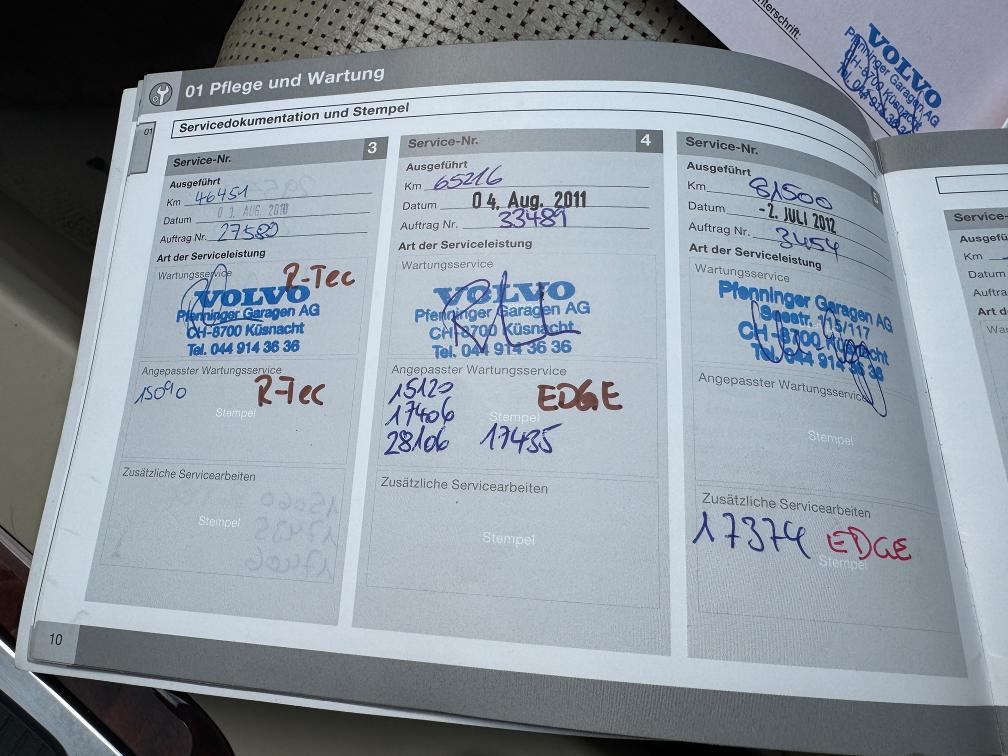 01 Pflege und Wartung
01
Servicedokumentation und Stempel
Service-Nr. 3
Ausgeführt
Km 46451
Datum AUG. 2010
Auftrag Nr. 27580
Art der Serviceleistung
Wartungsservice
R-Tec
VOLVO
Pfenninger Garagen AG
CH-8700 Küsnacht
Tel. 044 914 36 36
Angepasster Wartungsservice
15090 R-Tec
Stempel
Zusätzliche Servicearbeiten
Stempel
Service-Nr. 4
Ausgeführt
Km 65216
Datum 04. Aug. 2011
Auftrag Nr. 33489
Art der Serviceleistung
Wartungsservice
VOLVO
Pfenninger Garagen AG
CH-8700 Küsnacht
Tel. 044 914 36 36
Angepasster Wartungsservice
15120 EDGE
17406 Stempel
28106 17435
Zusätzliche Servicearbeiten
Stempel
Service-Nr. 5
Ausgeführt
Km 81500
Datum -2. JULI 2012
Auftrag Nr. 3454
Art der Serviceleistung
Wartungsservice
Pfenninger Garagen AG
Seestr. 115/117
CH-8700 Küsnacht
Tel. 044 914 36 36
Angepasster Wartungsservice
Stempel
Zusätzliche Servicearbeiten
17374 EDGE
Stempel
10
VOLVO
Pfenninger Garagen AG
CH-8700 Küsnacht
Tel. 044 914 36 36
Service-
Ausgefü
Km
Datum
Auftra
Art d
War